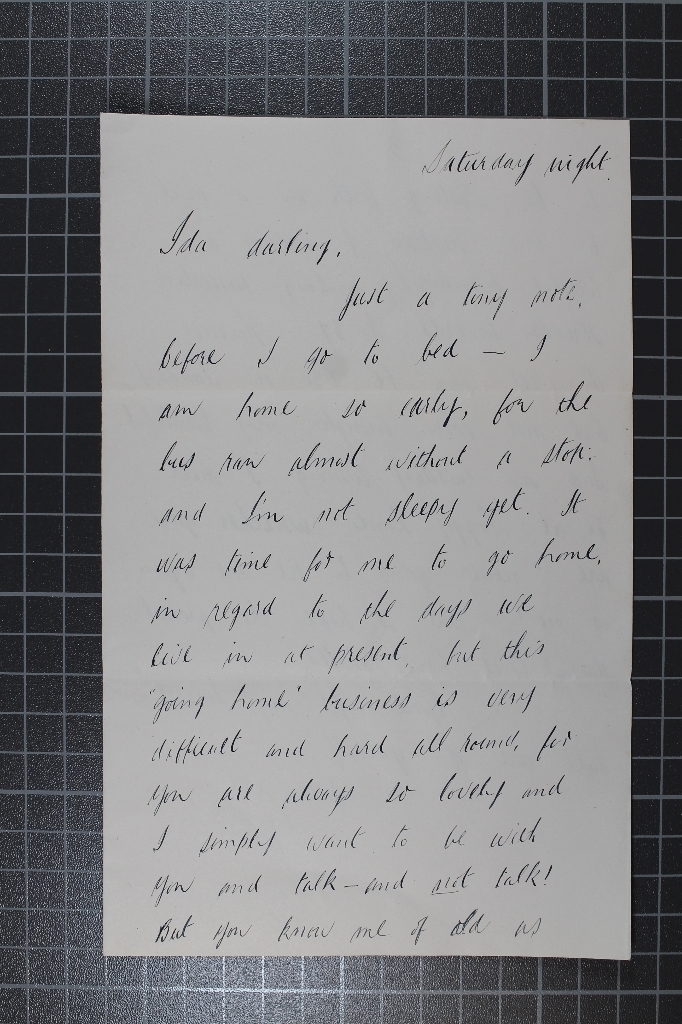 Saturday night.
Ida darling,
Just a tiny note,
before I go to bed — I
am home so early, for the
bus ran almost without a stop.
and I'm not sleepy yet. It
was time for me to go home,
in regard to the days we
live in at present, but this
"going home" business is very
difficult and hard all round, for
you are always so lovely and
I simply want to be with
you and talk — and not talk!
But you know me of old as